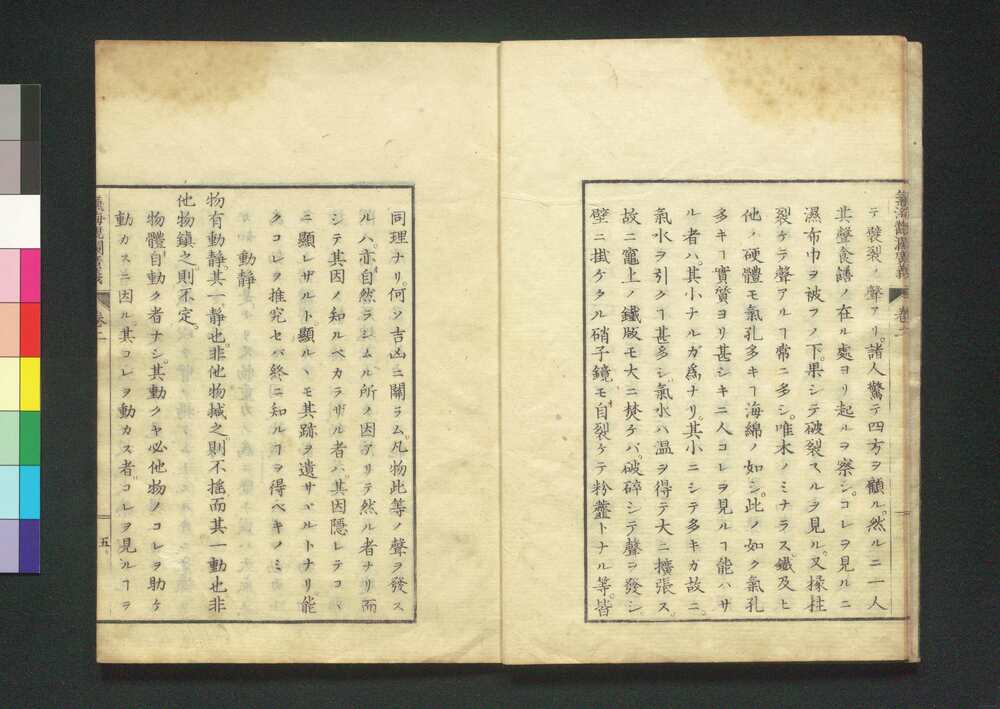 テ襞裂ノ聲アリ。諸人驚テ四方ヲ顧ル。然ルニ一人
其聲食鐥ノ在ル處ヨリ起ルヲ察シ。コレヲ見ルニ
濕布巾ヲ被フノ下。果シテ破裂スルヲ見ル。又椽柱
裂ケテ聲アルヿ常ニ多シ。唯木ノミナラス。鐵及ヒ
他ノ硬體モ氣孔多キヿ海綿ノ如シ。此ノ如ク氣孔
多キヿ實質ヨリ甚シキニ人コレヲ見ルヿ能ハサ
ル者ハ。其小ナルガ爲ナリ。其小ニシテ多キカ故ニ。
氣水ヲ引クヿ甚多シ。氣水ハ温ヲ得テ大ニ擴張ス。
故ニ竈上ノ鐵版モ大ニ焚ケバ。破碎シテ聲ヲ發シ
壁ニ掛ケタル硝子鏡モ自裂ケテ粉虀トナル等。皆
同理ナリ。何ソ吉凶ニ關ラム。凡物此等ノ聲ヲ發ス
ルハ。亦自然ラシムル所ノ因アリテ然ル者ナリ而
シテ其因ノ知ルベカラザル者ハ。其因隱レテコヽ
ニ顯レザルト顯ルヽモ其跡ヲ遺サヾルトナリ能
クコレヲ推究セバ終ニ知ルヿヲ得ベキノミ
動静
物有動静。其一静也。非他物摵之。則不揺而其一動也非
他物鎮之。則不定。
物體自動ク者ナシ。其動クヤ必他物ノコレヲ助ケ
動カスニ因ル。其コレヲ動カス者。コレヲ見ルヿヲ
卷二
五